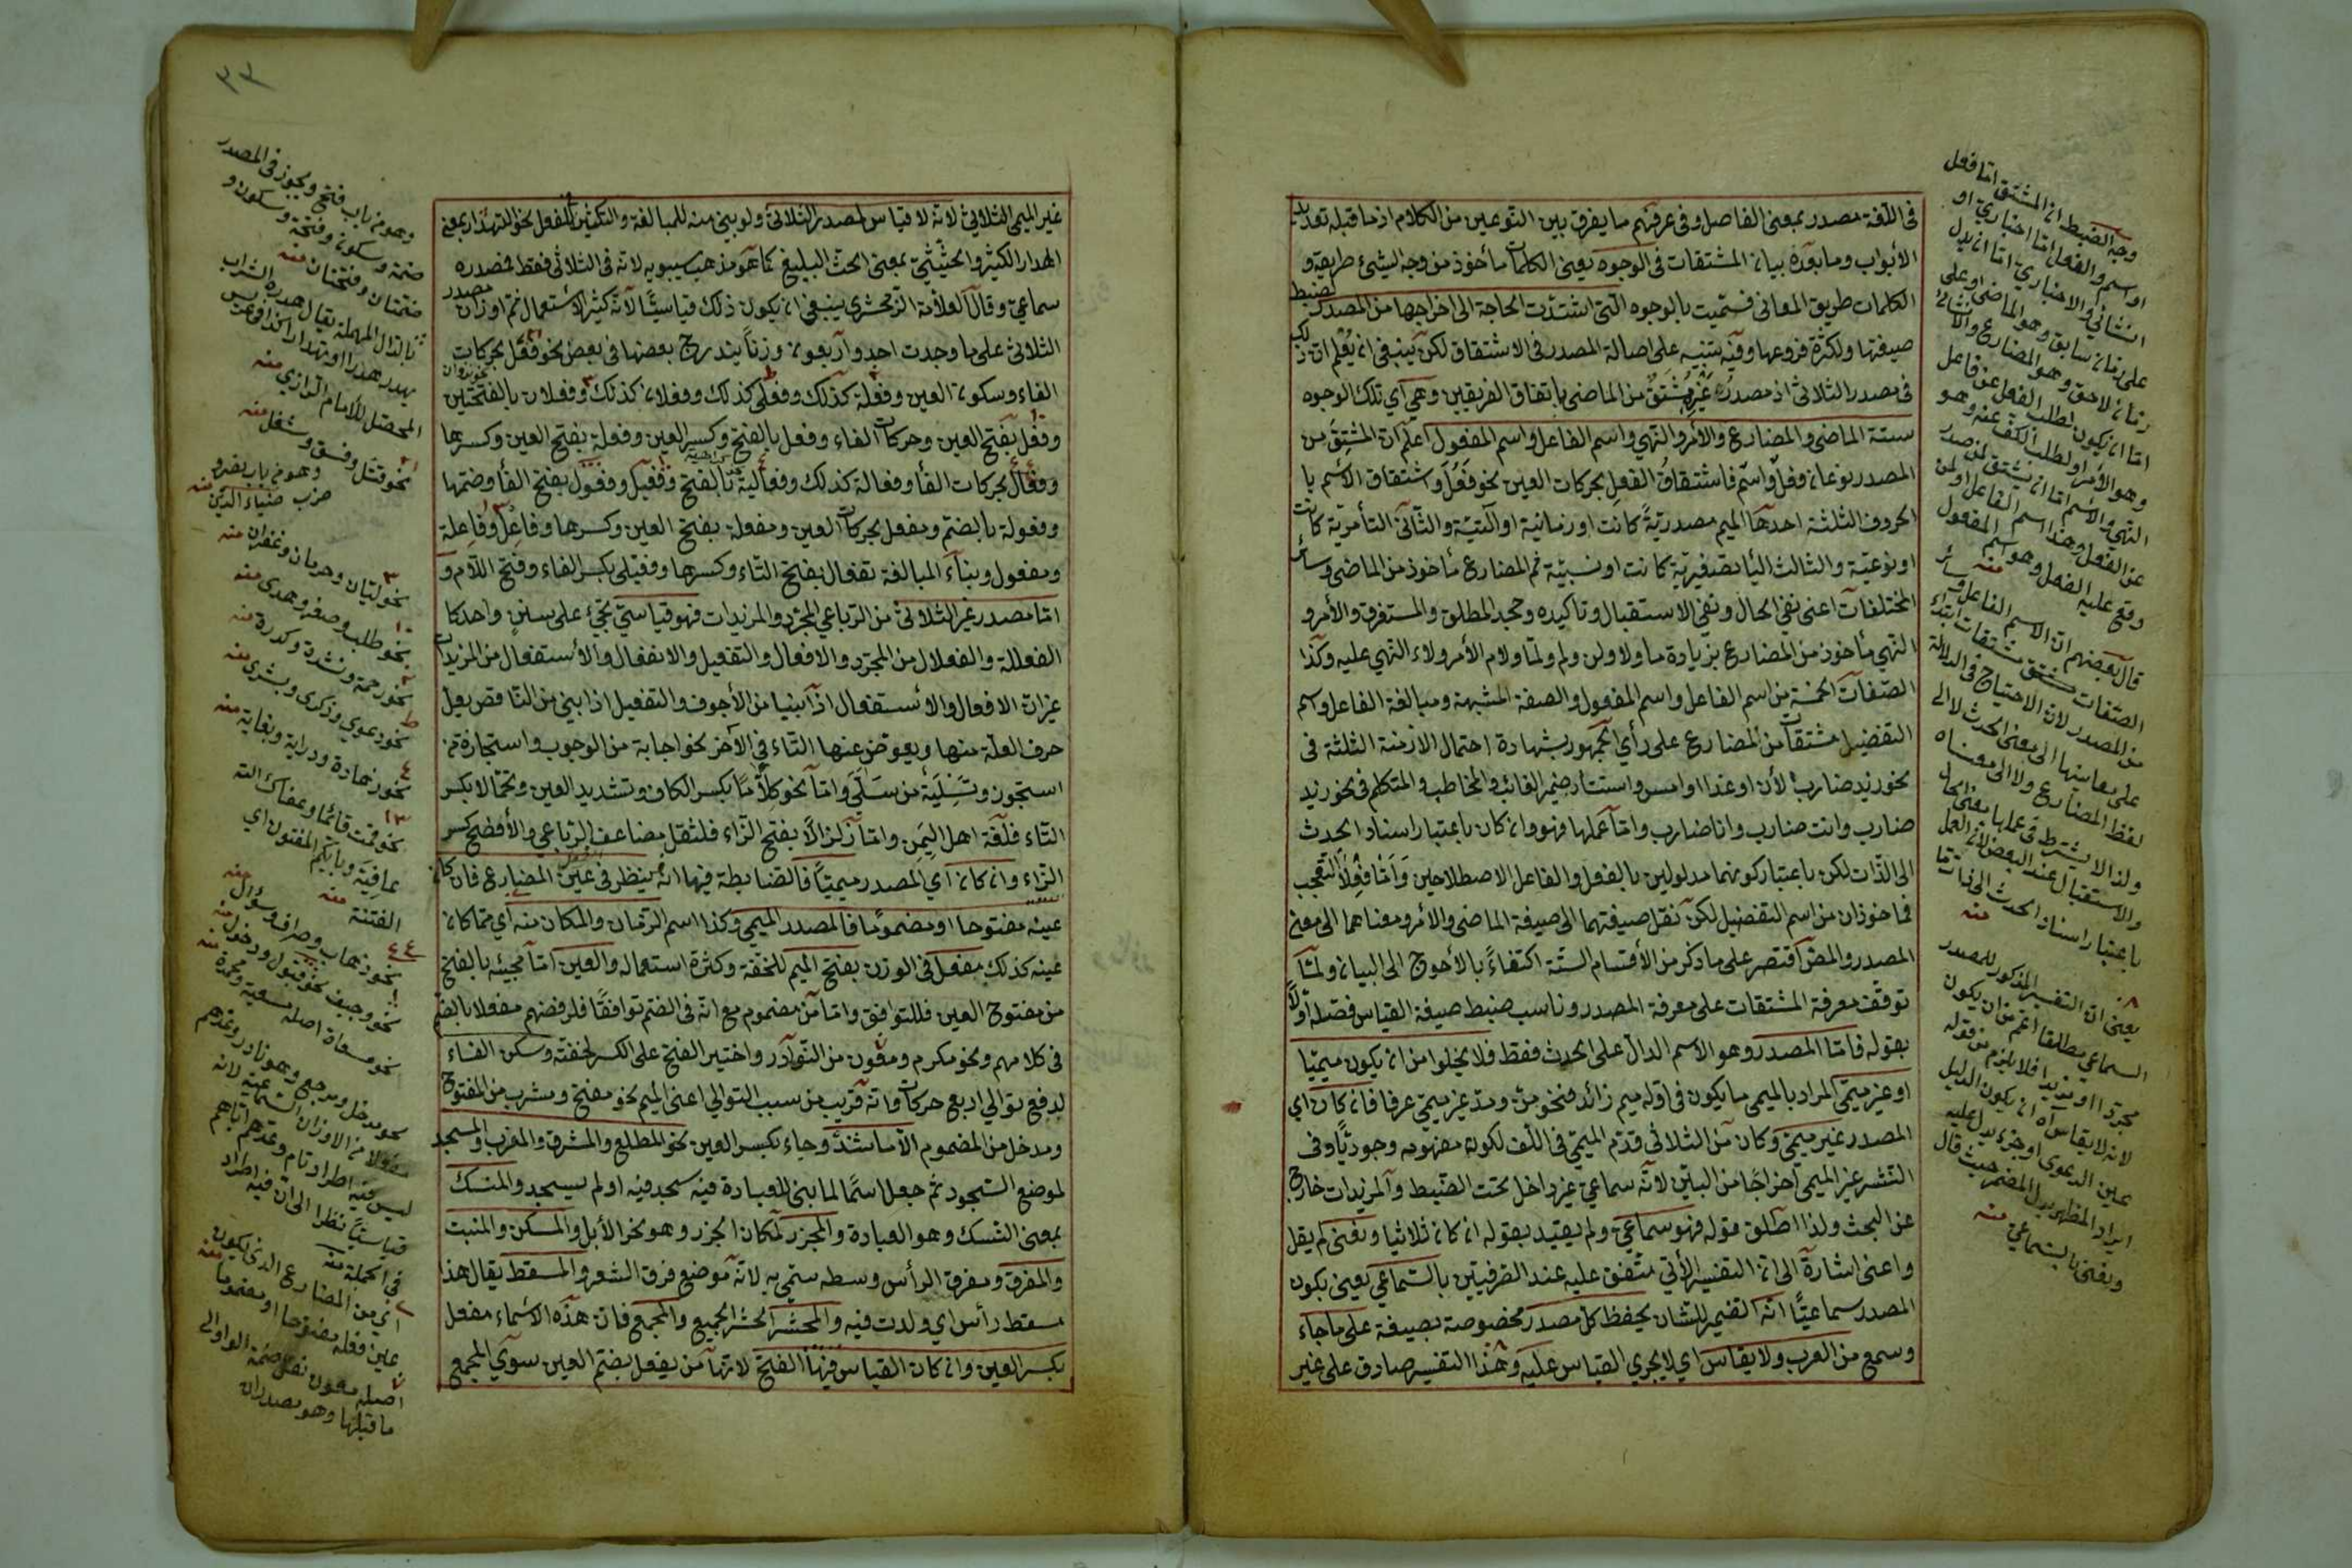 فى اللغة مصدر بمعنى الفاصل وفى عرفهم ما يفرق بين النوعين من الكلام اذ ما قبله تعديد
الأبواب وما بعده بيان المشتقات فى الوجوه يعنى الكلمات مأخوذ من وجه الشئ طريقه و
الكلمات طريق المعانى فسميت بالوجوه التى اشتدت الحاجة الى اخراجها من المصدر لضبط
صيغتها ولكثرة فروعها وفيه تنبيه على اصالة المصدر فى الاشتقاق لكن ينبغى ان يعلم ان ذلك
فى مصدر الثلاثى اذ مصدر غيره مشتق من الماضى باتفاق الفريقين وهى أي تلك الوجوه
ستة الماضى والمضارع والأمر والنهي واسم الفاعل واسم المفعول اعلم ان المشتق من
المصدر نوعان فعل واسم فاشتقاق الفعل بحركات العين نحو فعل واشتقاق الاسم با
الحروف الثلثة احدها الميم مصدرية كانت او زمانية او آلتية والثانى التأمرية كانت
او نوعية والثالث اليا تصغيرية كانت او نسبية ثم المضارع مأخوذ من الماضى وسائر
المختلفات اعنى نفى الحال ونفى الاستقبال وتاكيده وجحد المطلق والمستغرق والأمر و
النهي مأخوذ من المضارع بزيادة ما ولا ولن ولم ولما ولام الأمر ولاء النهي عليه وكذا
الصفات الخمسة من اسم الفاعل واسم المفعول والصفة المشبهة ومبالغة الفاعل واسم
التفضيل مشتقات من المضارع على رأي الجمهور بشهادة احتمال الازمنة الثلثة فى
نحو زيد ضارب الأن او غدا او امس واستتار ضمير الغائب والمخاطب والمتكلم فى نحو زيد
ضارب وانت ضارب وانا ضارب واما عملها فهو وان كان باعتبار اسناد الحدث
الى الذات لكن باعتبار كونهما مدلولين بالفعل والفاعل الاصطلاحين واما فعلا التعجب
فمأخوذان من اسم التفضيل لكن نقل صيغتهما الى صيغة الماضى والأمر ومعناهما الى معنى
المصدر والمص اقتصر على ما ذكر من الأقسام الستة اكتفاءً بالأحوج الى البيان ولما
توقف معرفة المشتقات على معرفة المصدر وناسب ضبط صيغة القياس فصله اولاً
بقوله فاما المصدر وهو الاسم الدال على الحدث فقط فلا يخلوا من ان يكون ميميا
او غير ميمى المراد بالميمى ما يكون فى اوله ميم زائد فنحو من ومد غير ميمى عرفا فان كان اي
المصدر غير ميمى وكان من الثلاثى قدم الميمى فى اللف لكون مفهومه وجوديا وفى
النشر غير الميمى اخراجا من البين لانه سماعى غير داخل تحت الضبط والمزيدات خارج
عن البحث ولذا اطلق قوله فهو سماعى ولم يقيد بقوله ان كان ثلاثيا ونعنى لم يقل
واعنى اشارة الى ان التفسير الأتي متفق عليه عند الصرفيين بالسماعى يعنى بكون
المصدر سماعيا انه الضمير للشان يحفظ كل مصدر مخصوصة بصيغة على ما جاء
وسمع من العرب ولا يقاس اي لا يجري القياس عليه وهذا التفسير صادق على غير
وجه الضبط ان المشتق اما فعل
او اسم والفعل اما اخباري او
انشائى والاخباري اما ان يدل
على زمان سابق وهو الماضى او على
زمان لاحق وهو المضارع والانشائى
اما ان يكون لطلب الفعل عن فاعل
وهو الأمر او لطلب الكف عنه وهو
النهي والاسم اما ان يشتق لمن صدر
عن الفعل وهذا اسم الفاعل او لمن
وقع عليه الفعل وهو اسم المفعول
منه
قال بعضهم ان الاسم الفاعل وسائر
الصفات مشتق مشتقات ابتداء
من المصدر لان الاحتياج فى الدلالة
على معانيها الى معنى الحدث لا الى
لفظ المضارع ولا الى معناه
ولذا لا يشترط فى عملها معنى الحال
والاستقبال عند البعض لان العمل
باعتبار اسناد الحدث الى ذات ما
منه
يعنى ان التفسير المذكور للمصدر
السماعى مطلقا اعم من ان يكون
مجردا او مزيدا فلا يلزم من قوله
لانه لا يقاس اه ان يكون الدليل
عين الدعوى او جزءه يدل عليه
ايراد المظهر بدل المضمر حيث قال
ونعنى بالسماعى منه
٣٣
غير الميمى الثلاثى لانه لا قياس لمصدر الثلاثى ولو بنى منه للمبالغة والتكثير كالتفعل نحو التهدار بمعنى
الهدار الكثير والحثيثى بمعنى الحث البليغ كما هو مذهب سيبويه لانه فى الثلاثى فقط فمصدره
سماعى وقال العلامة الزمخشرى ينبغى ان يكون ذلك قياسيا لانه كثير الاستعمال ثم اوزان مصدر
الثلاثى على ما وجدت احد واربعون وزناً يندرج بعضها فى بعض نحو فعل بحركات
الفاء وسكون العين وفعلة كذلك وفعلى كذلك وفعلان كذلك وفعلان بالفتحتين
وفعل بفتح العين وحركات الفاء وفعل بالفتح وكسر العين وفعلة بفتح العين وكسرها
وفعال بحركات الفأ وفعالة كذلك وفعالية بالفتح وفعيل وفعول بفتح الفأ وضمها
وفعولة بالضم ومفعل بحركات العين ومفعلة بفتح العين وكسرها وفاعل وفاعلة
ومفعول وبناء المبالغة تفعال بفتح التاء وكسرها وفعيلى بكسر الفاء وفتح اللام و
اما مصدر غير الثلاثى من الرباعي المجرد والمزيدات فهو قياسي تجيء على سنن واحد كا
الفعللة والفعلال من المجرد والافعال والتفعيل والانفعال والأستفعال من المزيدات
غير ان الافعال والأستفعال اذا بنيا من الأجوف والتفعيل اذا بني من الناقص يعل
حرف العلة منها ويعوض عنها التاء فى الأخر نحو اجابة من الوجوب واستجازة من
استجون وتسلية من سلى واما نحو كلاما بكسر الكاف وتشديد العين وتحمالا بكسر
التاء فلغة اهل اليمن واما زلزالاً بفتح الزاء فلثقل مضاعف الرباعي والأفصح كسر
الزاء وان كان أي المصدر ميميّاً فالضابطة فيها انه ينظر فى عين المضارع فان كان
عينه مفتوحا او مضموما فالمصدر الميمي وكذا اسم الزمان والمكان منه أي مما كان
عينه كذلك مفعل فى الوزن بفتح الميم للخفة وكثرة استعماله والعين اما مجيئه بالفتح
من مفتوح العين فللتوافق واما من مضموم مع انه فى الضم توافقا فلرفضهم مفعلا بالضم
فى كلامهم ونحو مكرم ومعون من النوادر واختير الفتح على الكسر لخفته وسكن الفاء
لدفع توالي اربع حركات وانه قريب من سبب التوالي اعنى الميم نحو مفتح ومشرب من المفتوح
ومدخل من المضموم الا ما شذ وجاء بكسر العين نحو المطلع والمشرق والمغرب والمسجد
لموضع السجود ثم جعل اسما لما بنى للعبادة فيه سجد فيه او لم يسجد والمنسك
بمعنى النسك وهو العبادة والمجزر لمكان الجزر وهو نحر الأبل والمسكن والمنبت
والمفرق ومفرق الرأس وسطه سمي به لانه موضع فرق الشعر والمسقط يقال هذا
مسقط رأس اي ولدت فيه والمحشر الحشر الجميع والمجمع فان هذه الاسماء مفعل
بكسر العين وان كان القياس فيها الفتح لانها من يفعل بضم العين سوي المجمع
وهو من باب فتح ويجوز فى المصدر
ضمة وسكون وفتحة وسكون و
ضمتان وفتحتان منه
بالدال المهملة يقال هدر الشراب
يهدر هدرا وتهدارا كذا فى
المحصل للأمام الرازي منه
نحو قتل وفسق وشغل منه
وهو من باب نصر و
ضرب ضياء الدين منه
نحو ليان وحرمان وغفران منه
نحو طلب وصغر وهدى منه
نحو رحمة ونشدة وكدرة منه
نحو دعوي وذكرى وبشرى منه
نحو زهادة ودراية وبغاية منه
نحو قمت قائما وعفاك الله
عافية وبأيكم المفتون اي
الفتنة منه
نحو ذهاب وصراف وسؤال منه
نحو وجيف نحو قبول ودخول منه
نحو مسعاة اصله مسعية ومحمدة منه
نحو مدخل ومرجع وهو نادر وعدهم
مفعولا من الاوزان السماعية لانه
ليس فيه اطراد تام وعدهم اياهم
قياسيا نظرا الى ان فيه اطراد
فى الجملة منه
اي من المضارع الذي يكون
عين فعله مفتوحا او مضموما منه
اصله معون نقل ضمة الواو الى
ما قبلها وهو مصدران